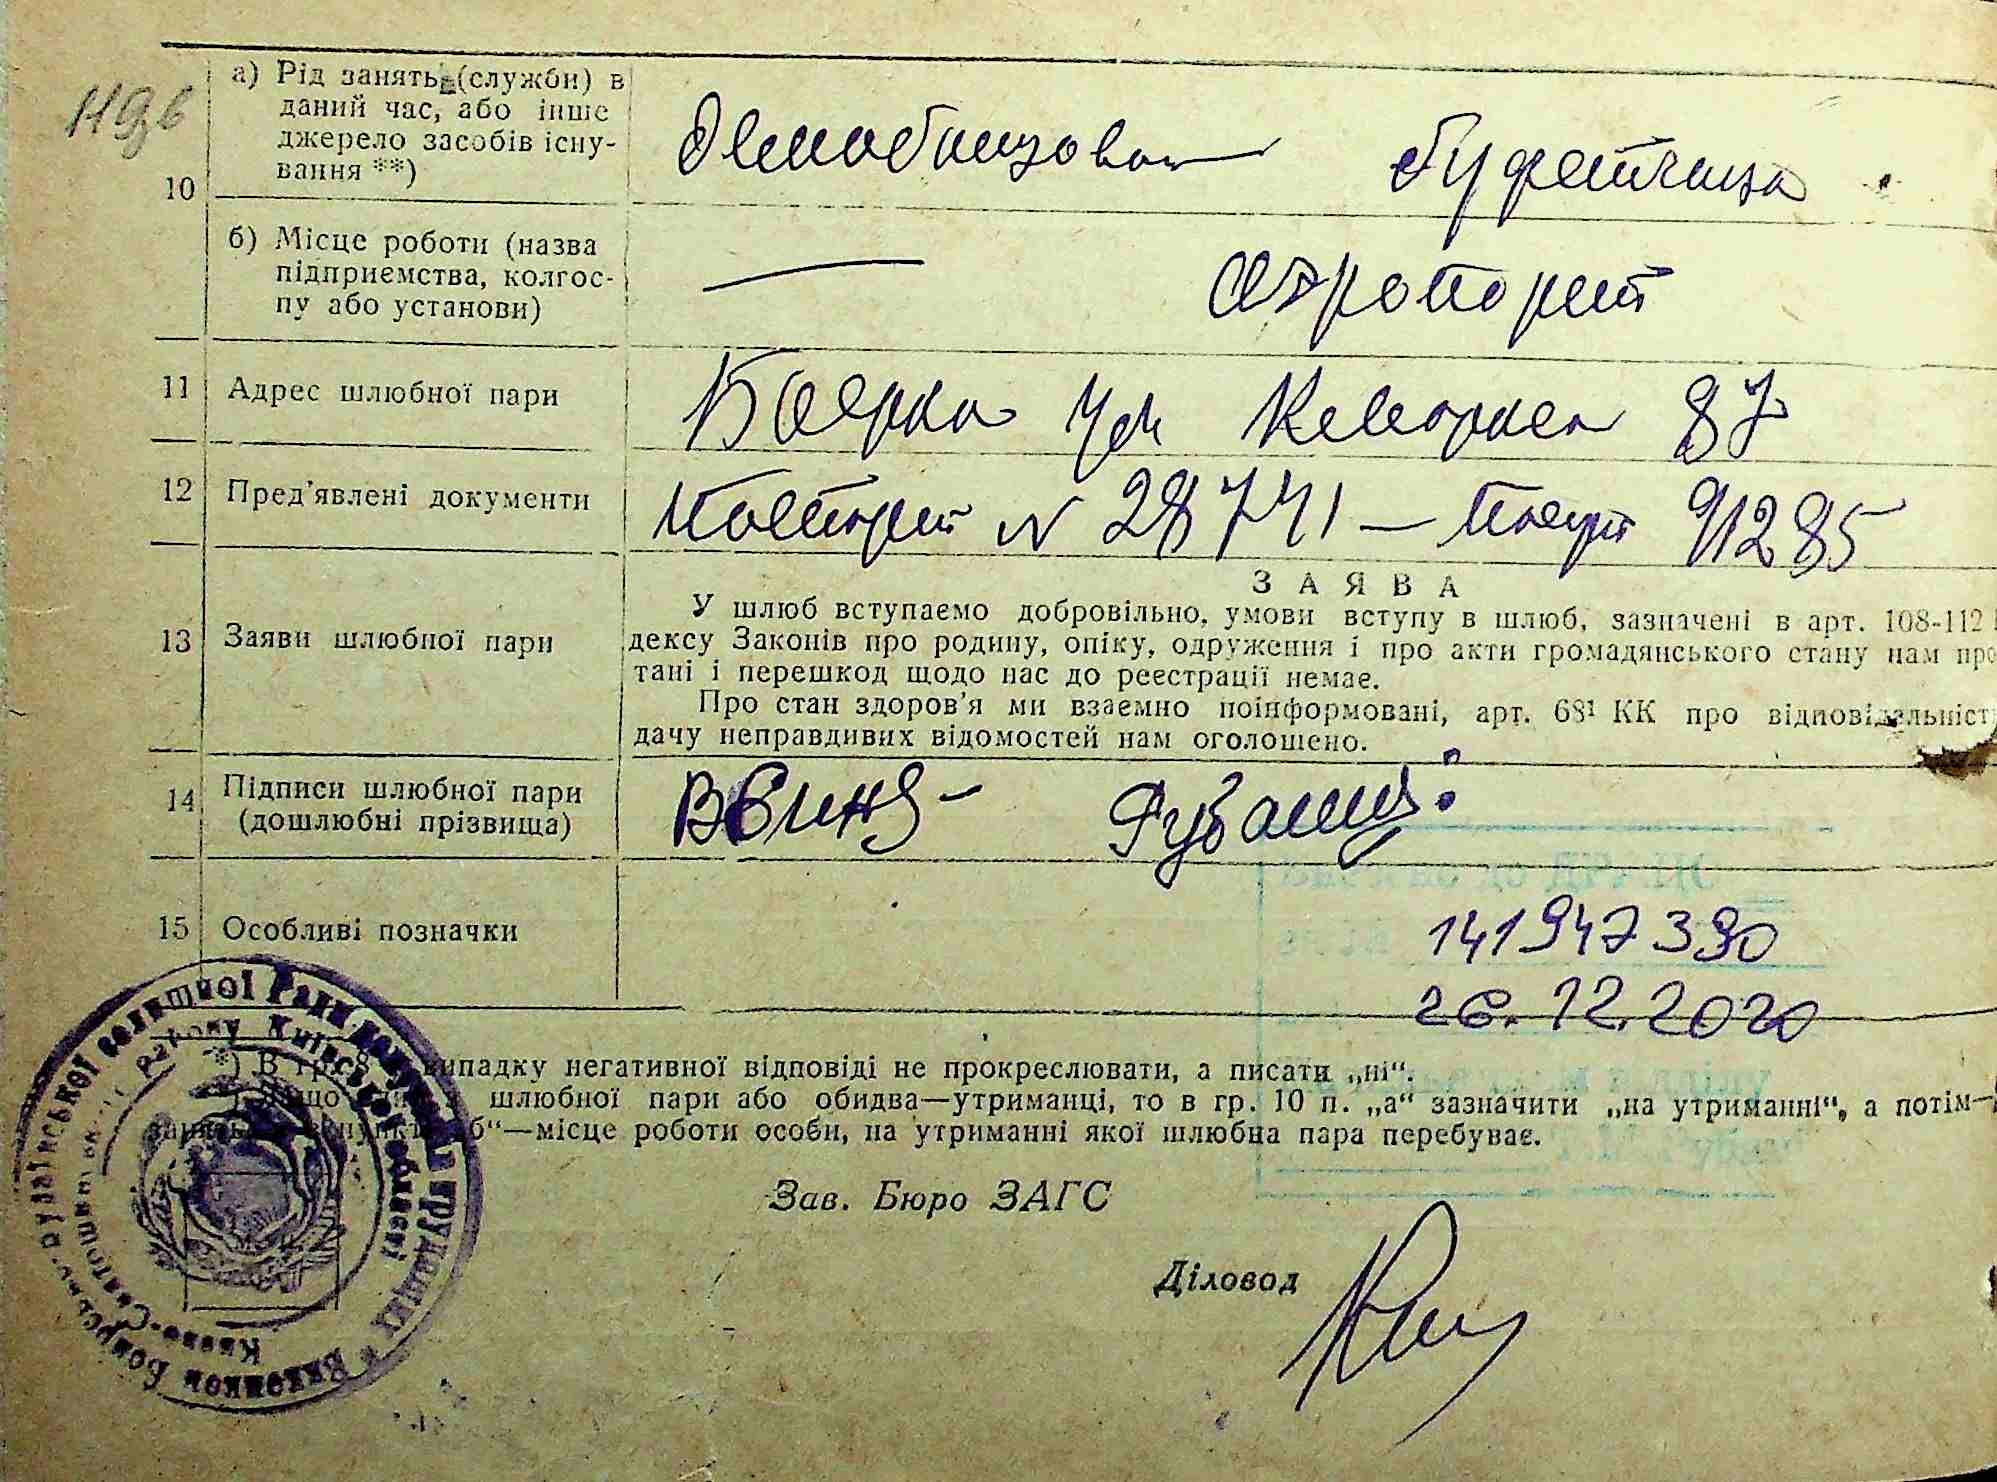 а) Рід занять (служби) в
даний час, або інше
джерело засобів існу-
вання **)
10
буфетчица
б) Місце роботи (назва
підприємства, колгос-
пу або установи)
—
аэропорт
11 Адрес шлюбної пари
Боярка ул 87
12 Пред'явлені документи
Паспорт N 28741 — 91285
З А Я В А
13 Заяви шлюбної пари
У шлюб вступаємо добровільно, умови вступу в шлюб, зазначені в арт. 108-112
дексу Законів про родину, опіку, одруження і про акти громадянського стану нам про
тані і перешкод щодо нас до реєстрації немає.
Про стан здоров'я ми взаємно поінформовані, арт. 68¹ КК про відповідальніст
дачу неправдивих відомостей нам оголошено.
14 Підписи шлюбної пари
(дошлюбні прізвища)
15 Особливі позначки
141947390
26.12.2020
*) В гр. 8 випадку негативної відповіді не прокреслювати, а писати „ні“.
шлюбної пари або обидва—утриманці, то в гр. 10 п. „а“ зазначити „на утриманні“, а потім—
б“—місце роботи особи, на утриманні якої шлюбна пара перебуває.
Зав. Бюро ЗАГС
Діловод
Виконком Боярської селищної Ради депутатів трудящих
Києво-Святошинського району Київської області